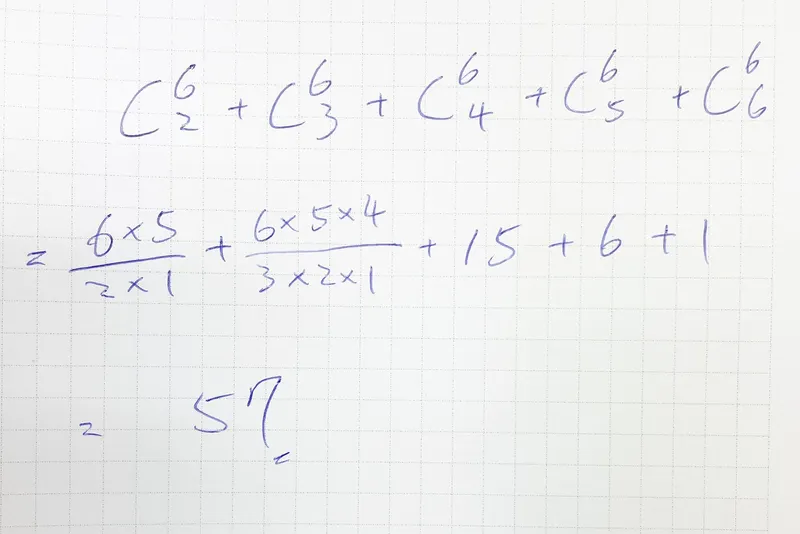 C⁶₂ + C⁶₃ + C⁶₄ + C⁶₅ + C⁶₆
= 6×5/2×1 + 6×5×4/3×2×1 + 15 + 6 + 1
= 57